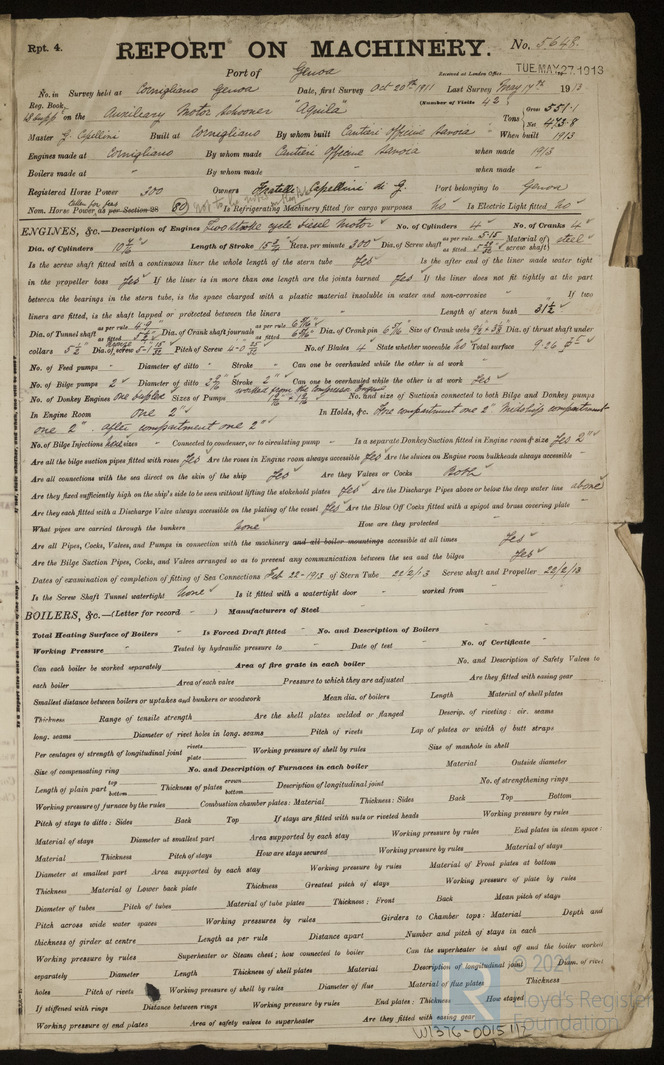 Rpt. 4. REPORT ON MACHINERY. No. 5648.
Port of Genoa Received at London Office TUE. MAY. 27. 1913
No. in Survey held at Cornigliano Genoa Date, first Survey Oct 20th 1911 Last Survey May 17th 1913
Reg. Book. (Number of Visits 42)
on the Auxiliary Motor Schooner "Aquila" Tons Gross 551.1 Net 473.8
Master G. Capellini Built at Cornigliano By whom built Cantieri Officine Savoia When built 1913
Engines made at Cornigliano By whom made Cantieri Officine Savoia when made 1913
Boilers made at " By whom made " when made "
Registered Horse Power 300 Owners Fratelli Capellini di G. Port belonging to Genoa
Nom. Horse Power as per Section 28 Is Refrigerating Machinery fitted for cargo purposes no Is Electric Light fitted no
ENGINES, &c.—Description of Engines Two stroke cycle diesel motor No. of Cylinders 4 No. of Cranks 4
Dia. of Cylinders Length of Stroke Revs. per minute 300 Dia. of Screw shaft as per rule 5.15 as fitted Material of screw shaft steel
Is the screw shaft fitted with a continuous liner the whole length of the stern tube Yes Is the after end of the liner made water tight
in the propeller boss Yes If the liner is in more than one length are the joints burned Yes If the liner does not fit tightly at the part
between the bearings in the stern tube, is the space charged with a plastic material insoluble in water and non-corrosive " If two
liners are fitted, is the shaft lapped or protected between the liners " Length of stern bush 31½
Dia. of Tunnel shaft as per rule 4.9 as fitted Dia. of Crank shaft journals as per rule as fitted Dia. of Crank pin Size of Crank webs Dia. of thrust shaft under
collars 5½ Dia. of screw Pitch of Screw No. of Blades 4 State whether moveable no Total surface 9.26
No. of Feed pumps " Diameter of ditto " Stroke " Can one be overhauled while the other is at work "
No. of Bilge pumps 2 Diameter of ditto Stroke 2" Can one be overhauled while the other is at work Yes
No. of Donkey Engines one duplex Sizes of Pumps No. and size of Suctions connected to both Bilge and Donkey pumps
In Engine Room One 2" In Holds, &c. Fore compartment one 2" Midships compartment
one 2". after compartment one 2"
No. of Bilge Injections sizes Connected to condenser, or to circulating pump " Is a separate Donkey Suction fitted in Engine room & size Yes 2"
Are all the bilge suction pipes fitted with roses Yes Are the roses in Engine room always accessible Yes Are the sluices on Engine room bulkheads always accessible "
Are all connections with the sea direct on the skin of the ship Yes Are they Valves or Cocks Both
Are they fixed sufficiently high on the ship's side to be seen without lifting the stokehold plates Yes Are the Discharge Pipes above or below the deep water line above
Are they each fitted with a Discharge Valve always accessible on the plating of the vessel Yes Are the Blow Off Cocks fitted with a spigot and brass covering plate "
What pipes are carried through the bunkers None How are they protected "
Are all Pipes, Cocks, Valves, and Pumps in connection with the machinery and all boiler mountings accessible at all times Yes
Are the Bilge Suction Pipes, Cocks, and Valves arranged so as to prevent any communication between the sea and the bilges Yes
Dates of examination of completion of fitting of Sea Connections Feb 22-1913 of Stern Tube 22/2/13 Screw shaft and Propeller 22/2/13
Is the Screw Shaft Tunnel watertight None Is it fitted with a watertight door " worked from "
BOILERS, &c.—(Letter for record " ) Manufacturers of Steel
Total Heating Surface of Boilers " Is Forced Draft fitted " No. and Description of Boilers "
Working Pressure " Tested by hydraulic pressure to " Date of test " No. of Certificate "
Can each boiler be worked separately Area of fire grate in each boiler No. and Description of Safety Valves to
each boiler Area of each valve Pressure to which they are adjusted Are they fitted with easing gear
Smallest distance between boilers or uptakes and bunkers or woodwork Mean dia. of boilers Length Material of shell plates
Thickness Range of tensile strength Are the shell plates welded or flanged Descrip. of riveting: cir. seams
long. seams Diameter of rivet holes in long. seams Pitch of rivets Lap of plates or width of butt straps
Per centages of strength of longitudinal joint rivets plate Working pressure of shell by rules Size of manhole in shell
Size of compensating ring No. and Description of Furnaces in each boiler Material Outside diameter
Length of plain part top bottom Thickness of plates crown bottom Description of longitudinal joint No. of strengthening rings
Working pressure of furnace by the rules Combustion chamber plates: Material Thickness: Sides Back Top Bottom
Pitch of stays to ditto: Sides Back Top If stays are fitted with nuts or riveted heads Working pressure by rules
Material of stays Diameter at smallest part Area supported by each stay Working pressure by rules End plates in steam space:
Material Thickness Pitch of stays How are stays secured Working pressure by rules Material of stays
Diameter at smallest part Area supported by each stay Working pressure by rules Material of Front plates at bottom
Thickness Material of Lower back plate Thickness Greatest pitch of stays Working pressure of plate by rules
Diameter of tubes Pitch of tubes Material of tube plates Thickness: Front Back Mean pitch of stays
Pitch across wide water spaces Working pressures by rules Girders to Chamber tops: Material Depth and
thickness of girder at centre Length as per rule Distance apart Number and pitch of stays in each
Working pressure by rules Superheater or Steam chest; how connected to boiler Can the superheater be shut off and the boiler worked
separately Diameter Length Thickness of shell plates Material Description of longitudinal joint Diam. of rivet
holes Pitch of rivets Working pressure of shell by rules Diameter of flue Material of flue plates Thickness
If stiffened with rings Distance between rings Working pressure by rules End plates: Thickness How stayed
Working pressure of end plates Area of safety valves to superheater Are they fitted with easing gear
© 2021
Lloyd's Register
Foundation